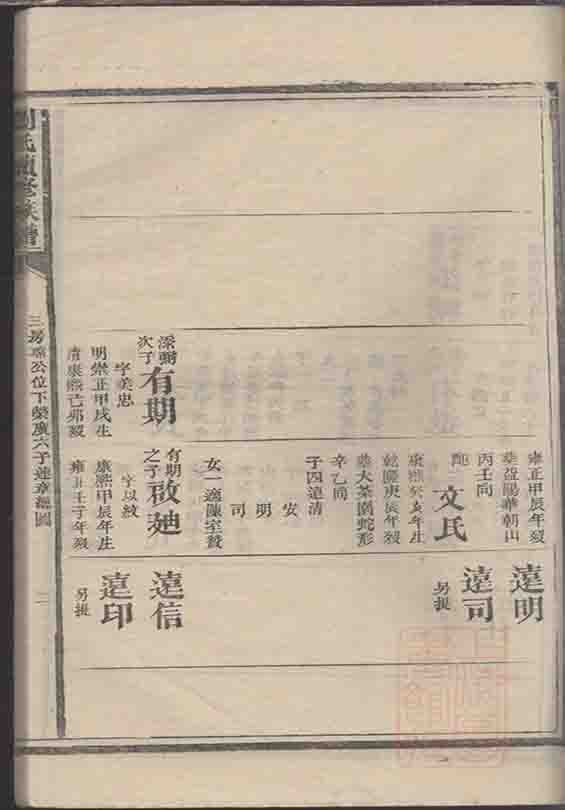 雍正甲辰年殁
葬益陽華朝山
丙壬向
配
文氏
康熙癸亥年生
乾隆庚辰年殁
葬大茶園蛇形
辛乙向
子四遠清
安
明
司
女一適陳室賛
遠明
遠司
另提
次子
有期
字美忠
明崇正甲戌生
清康熙己卯殁
有期
之子
啟廸
字以紋
康熙甲辰年生
雍正壬子年殁
遠信
遠印
另提
氏續修族譜
三房
公位下榮廣六子蓮章總圖